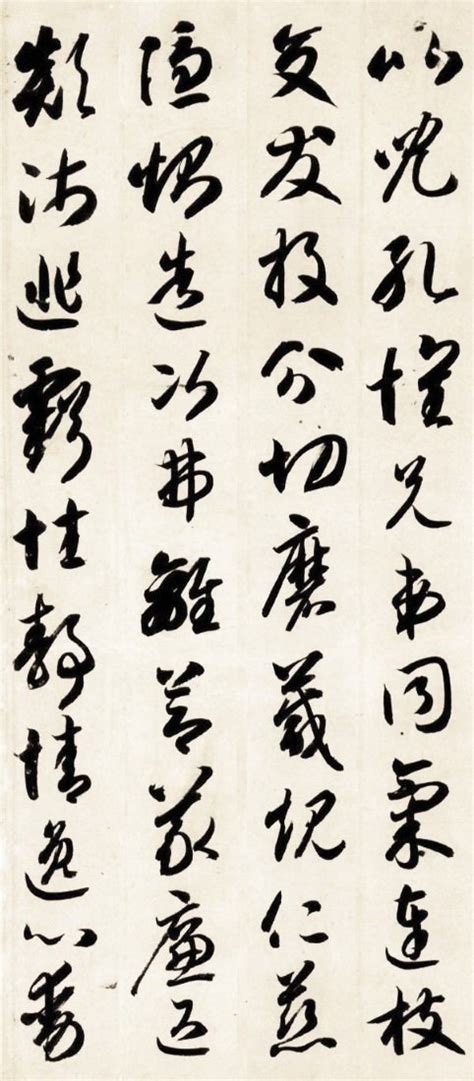 比兒孔懷兄弟同氣連枝
交友投分切磨箴規仁慈
隱惻造次弗離節義廉退
顛沛匪虧性靜情逸心動